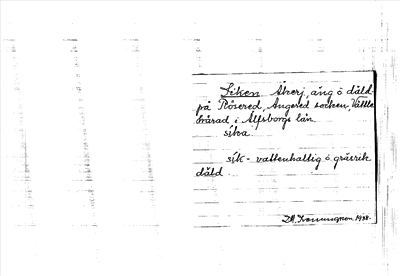 Siken Åkerj, äng ö däld
på Rösered, Angered socken, Vättle
härad i Älfsborgs län.
sika.
sik - vattenhaltig ö gräsrik
däld
1938.